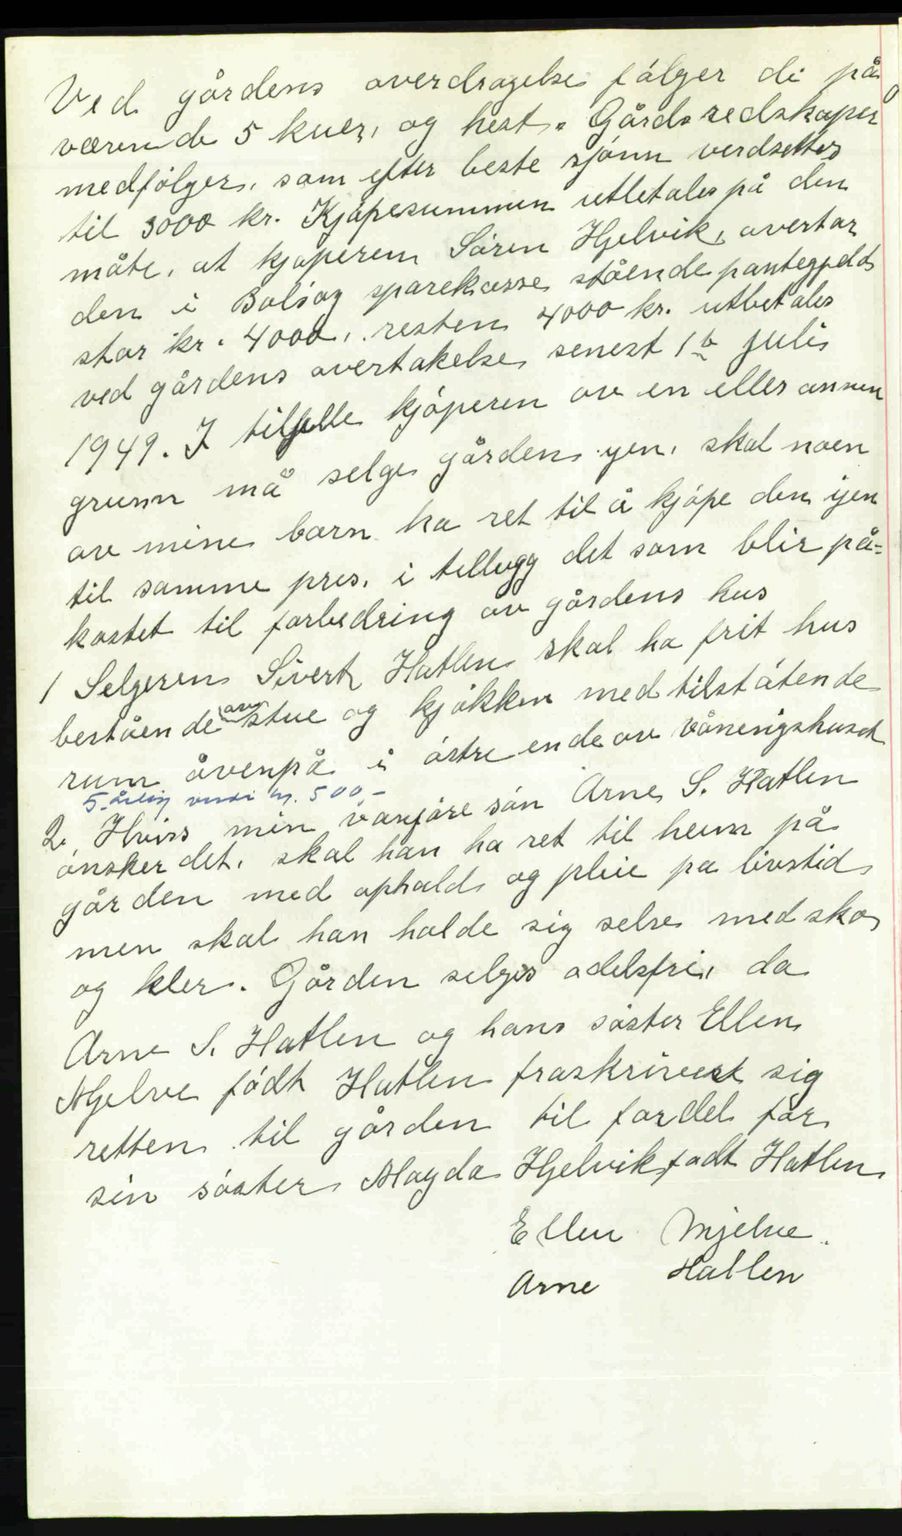 Ved gårdens overdragelse følger de på
værende 5 kuer, og hest. Gårdsredskaper
medfølger, som efter beste sjønn verdsettes
til 3000 kr. Kjøpesummen utbetales på den
måte, at kjøperen Søren Hjelvik, overtar
den i Bolsøy sparekasse stående pantegjeld
stor kr. 4000, resten 4000 kr. utbetales
ved gårdens overtakelse senest 1ste juli
1949. I tilfelle kjøperen av en eller annen
grunn må selge gården igen, skal noen
av mine barn ha ret til å kjøpe den igen
til samme pris, i tillegg det som blir på=
kostet til forbedring av gårdens hus
1 Selgeren Sivert Hatlen skal ha frit hus
bestående av stue og kjøkken med tilstøtende
rum ovenpå i østre ende av våningshuset
5-årlig verdi kr. 500,-
2 Hvis min vanføre søn Arne S. Hatlen
ønsker det, skal han ha ret til heim på
gården med ophold og pleie på livstid
men skal han holde sig selv med sko
og kler. Gården selges odelsfri, da
Arne S. Hatlen og hans søster Ellen
Mjelve født Hatlen fraskrivest sig
retten til gården til fordel for
sin søster Magda Hjelvik født Hatlen
Ellen Mjelve.
Arne Hatlen